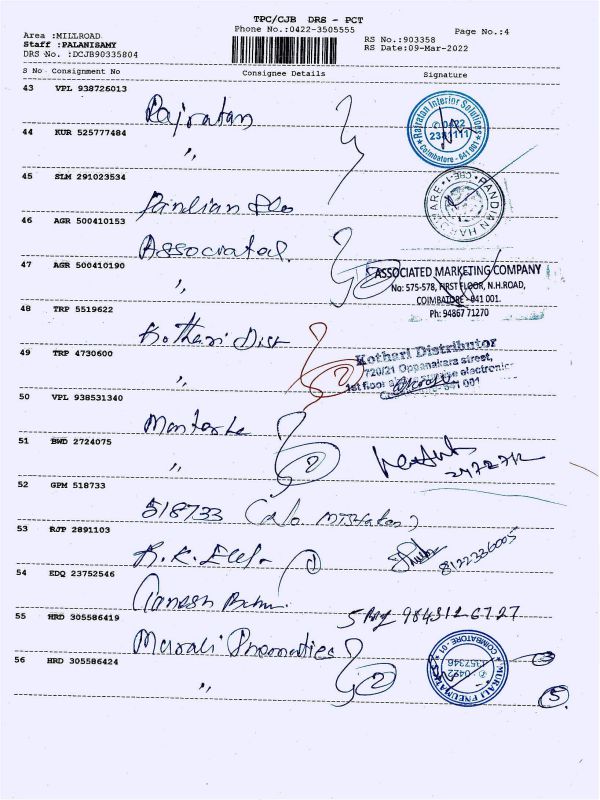 TPC/CJB DRS - PCT
Phone No.:0422-3505555
Page No.:4
Area :MILLROAD
Staff :PALANISAMY
DRS No. :DCJB90335804
RS No.:903358
RS Date:09-Mar-2022
S No Consignment No Consignee Details Signature
43 VPL 938726013
Rajratan
Rajratan Interior Solutions
Coimbatore - 641 001
44 KUR 525777484
"
45 SLM 291023534
Pandian
PANDIAN HARDWARE
CBE-1
46 AGR 500410153
Associated
47 AGR 500410190
"
2
ASSOCIATED MARKETING COMPANY
No: 575-578, FIRST FLOOR, N.H.ROAD,
COIMBATORE - 641 001.
Ph: 94867 71270
48 TRP 5519622
Kothari Dist
49 TRP 4730600
"
2
Kothari Distributor
720/21 Oppanakara street,
1st floor electronic
641 001
50 VPL 938531340
51 BWD 2724075
"
2
52 GPM 518733
518733
53 RJP 2891103
R.K. Elec
1
8122336005
54 EDQ 23752546
Ganesh
55 HRD 305586419
Murali Pnematies
56 HRD 305586424
"
2
MURALI PNEUMATIC
COIMBATORE - 01
5